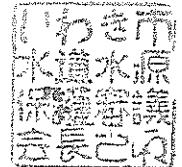 いわき市
水道水源
保護審議
会長之印